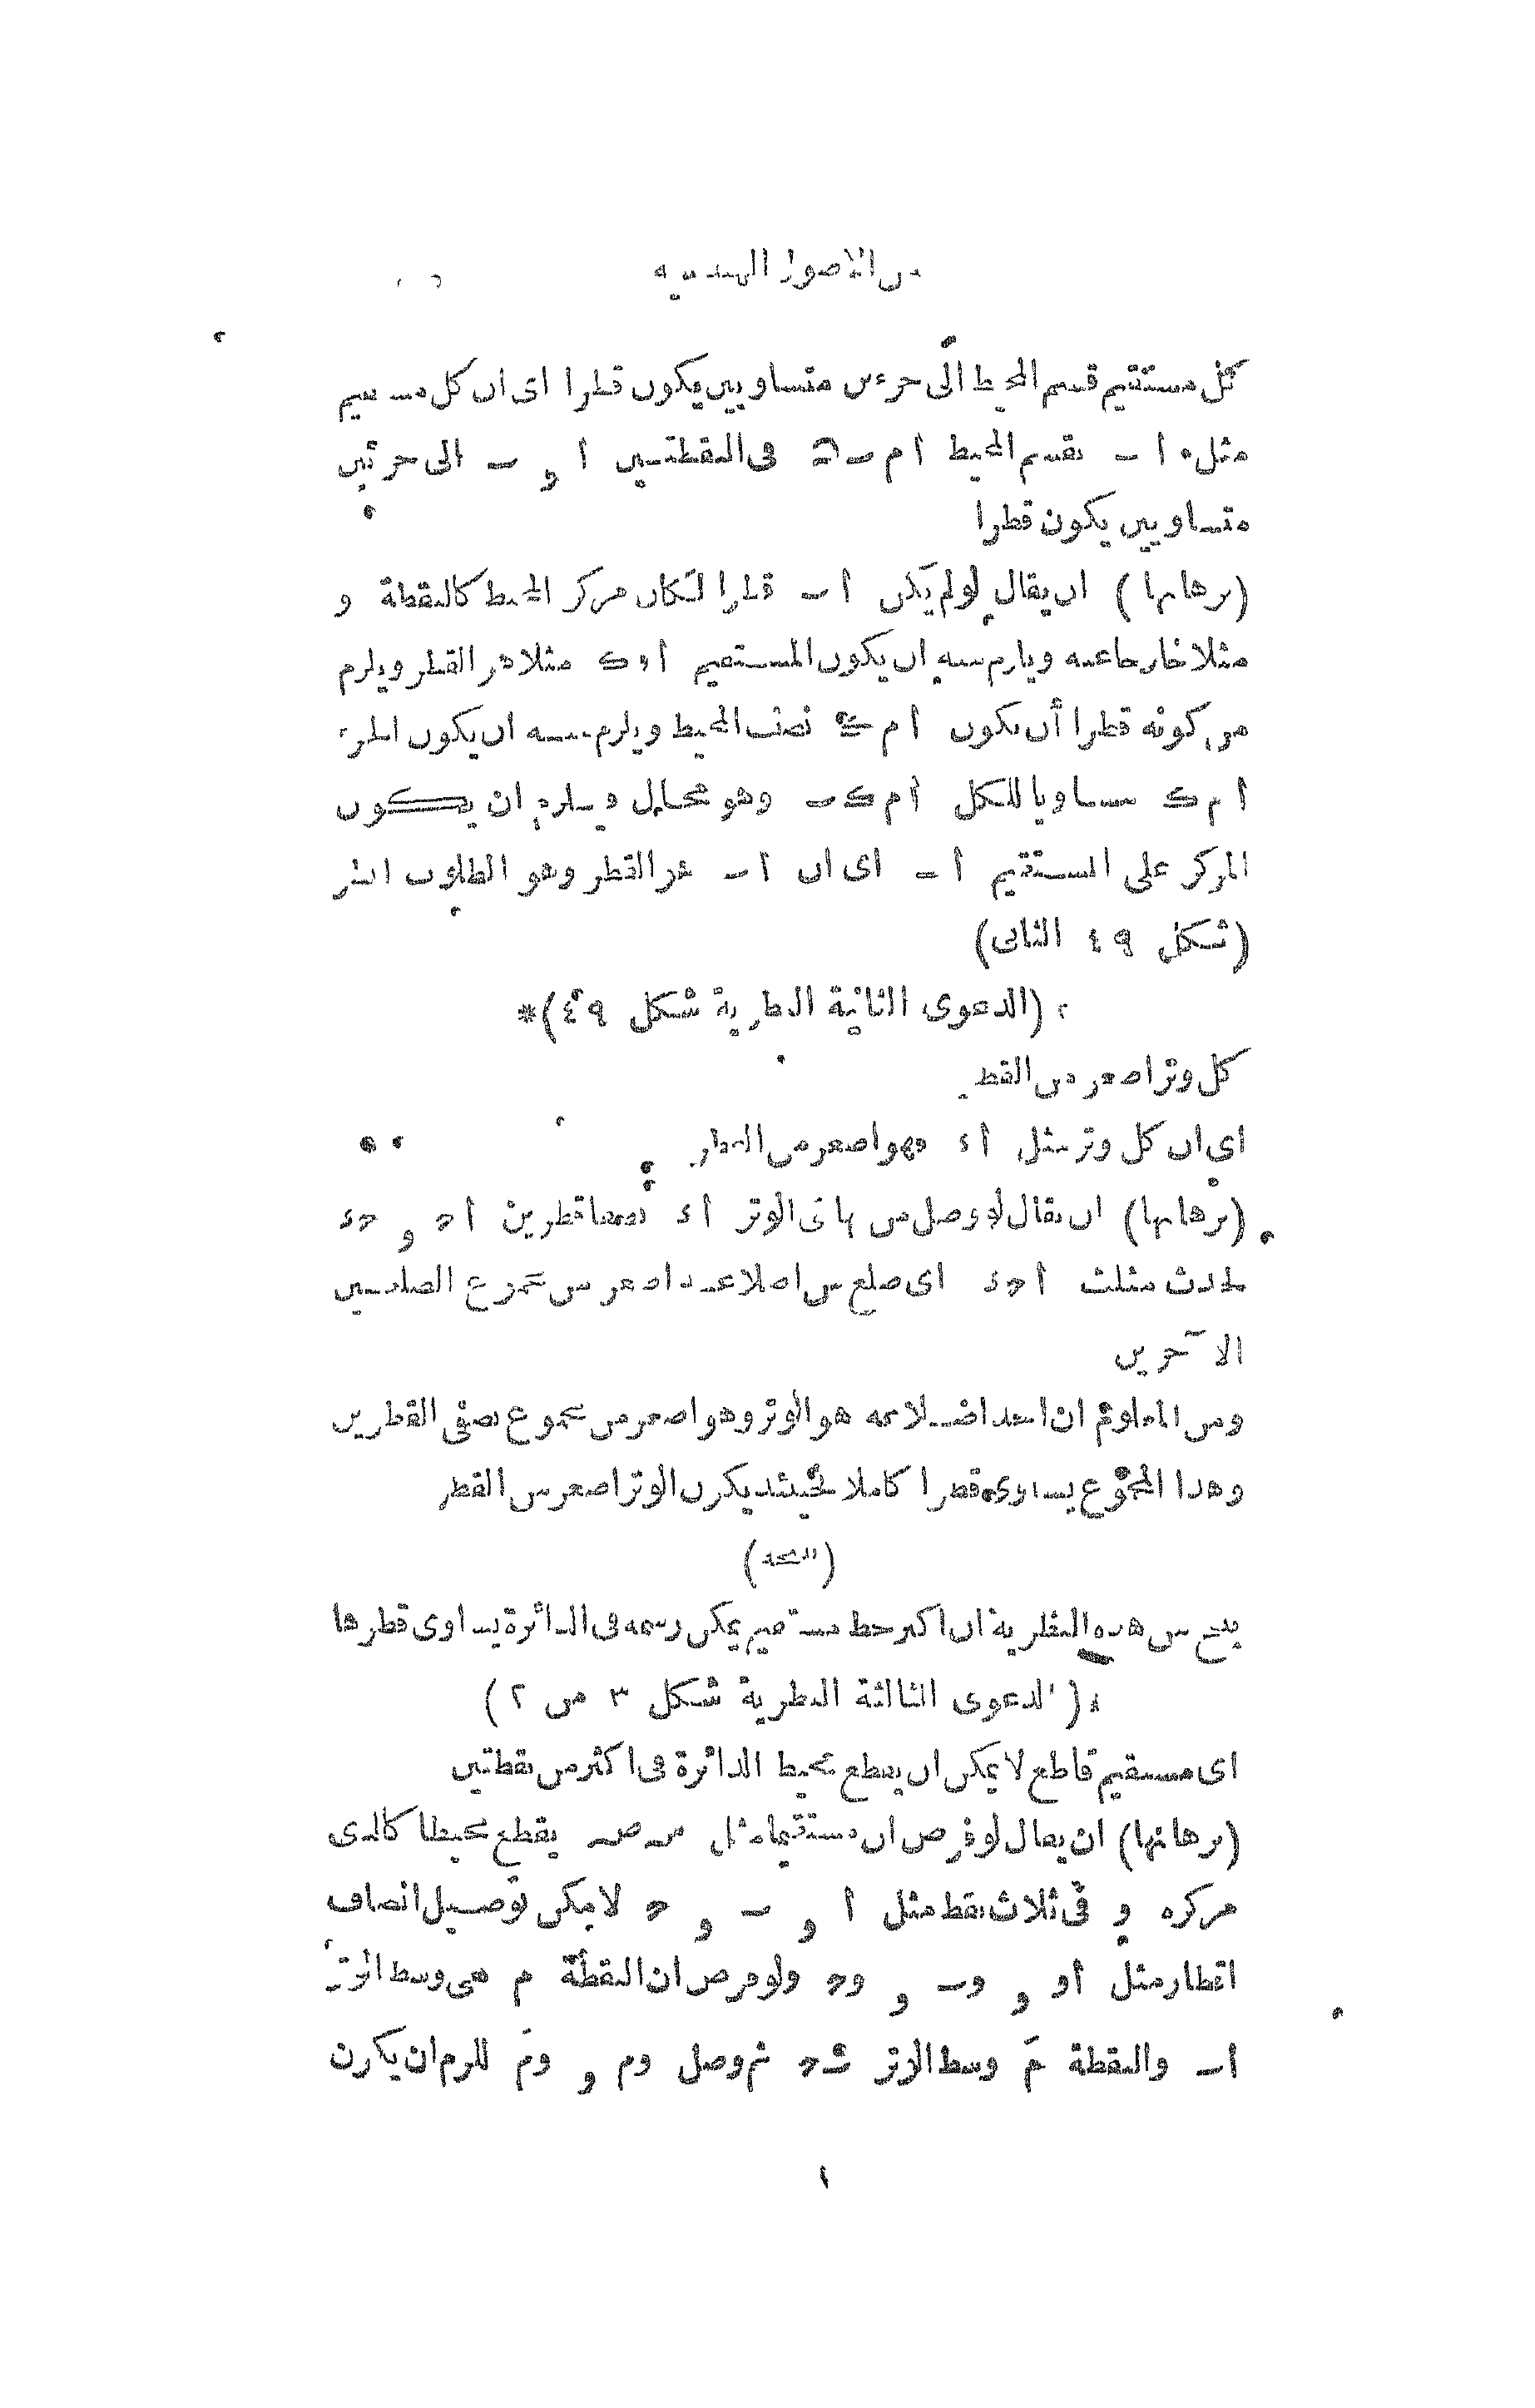 من الاصول الهندسية
كل مستقيم قسم المحيط الى جزءين متساويين يكون قطرا اى ان كل مستقيم
مثل ا ب يقسم المحيط ا م ب ه فى النقطتين ا و ب الى جزئين
متساويين يكون قطرا
(برهانها) ان يقال لو لم يكن ا ب قطرا لكان مركز المحيط كالنقطة و
مثلا خارجا عنه ويلزم منه ان يكون المستقيم ا و ك مثلا هو القطر ويلزم
من كونه قطرا أن يكون ا م ك نصف المحيط ويلزم منه ان يكون الجزء
ا م ك مساويا للكل ا م ك ب وهو محال ويلزم ان يكون
المركز على المستقيم ا ب اى ان ا ب هو القطر وهو المطلوب انظر
(شكل ٤٩ الثانى)
(الدعوى الثانية النظرية شكل ٤٩)*
كل وتر اصغر من القطر
اى ان كل وتر مثل ا د فهو اصغر من القطر
(برهانها) ان يقال لو وصل من نهايتى الوتر ا د نصفا قطرين ا ه و ه د
لحدث مثلث ا ه د اى ضلع من اضلاعه اصغر من مجموع الضلعين
الآخرين
ومن المعلوم ان احد اضلاعه هو الوتر وهو اصغر من مجموع نصفى القطرين
وهذا المجموع يساوى قطرا كاملا فحينئذ يكون الوتر اصغر من القطر
(النتيجة)
ينتج من هذه النظرية ان اكبر خط مستقيم يمكن رسمه فى الدائرة يساوى قطرها
(الدعوى الثالثة النظرية شكل ٣ من ٢)
اى مستقيم قاطع لا يمكن ان يقطع محيط الدائرة فى اكثر من نقطتين
(برهانها) ان يقال لو فرض ان مستقيما مثل س ص يقطع محيطا كالذى
مركزه و فى ثلاث نقط مثل ا و ب و ه لامكن توصيل انصاف
اقطار مثل أو و وب و وه ولو فرض ان النقطة م هى وسط الوتر
ا ب والنقطة مَ وسط الوتر ب ه ثم وصل وم و ومَ للزم ان يكون